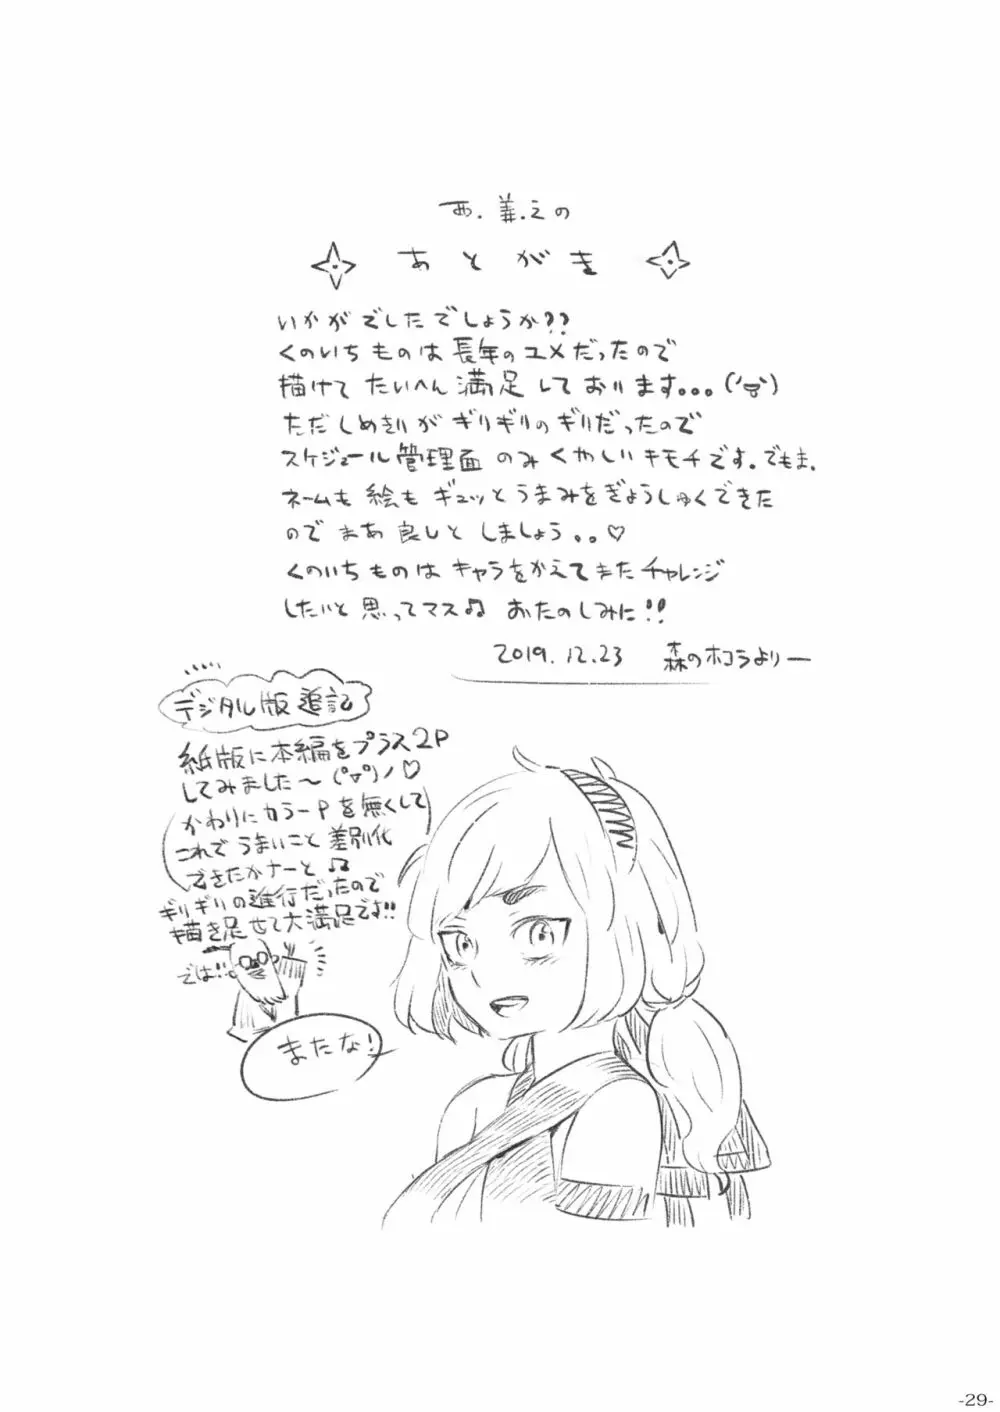 西.義.之の
あとがき
いかがでしたでしょうか??
くのいちものは長年のユメだったので
描けてたいへん満足しております。。。
ただしめきりがギリギリのギリだったので
スケジュール管理面のみくやしいキモチです。でもま、
ネームも絵もギュッとうまみをぎょうしゅくできた
のでまあ良しとしましょう。。♡
くのいちものはキャラをかえてまたチャレンジ
したいと思ってマス♫ おたのしみに!!
2019.12.23 森のホコラより―
デジタル版追記
紙版に本編をプラス2P
してみました〜(°▽°)ノ♡
(かわりにカラーPを無くして)
これでうまいこと差別化
できたかナーと♫
ギリギリの進行だったので
描き足せて大満足です!!
では!!
またな!
-29-